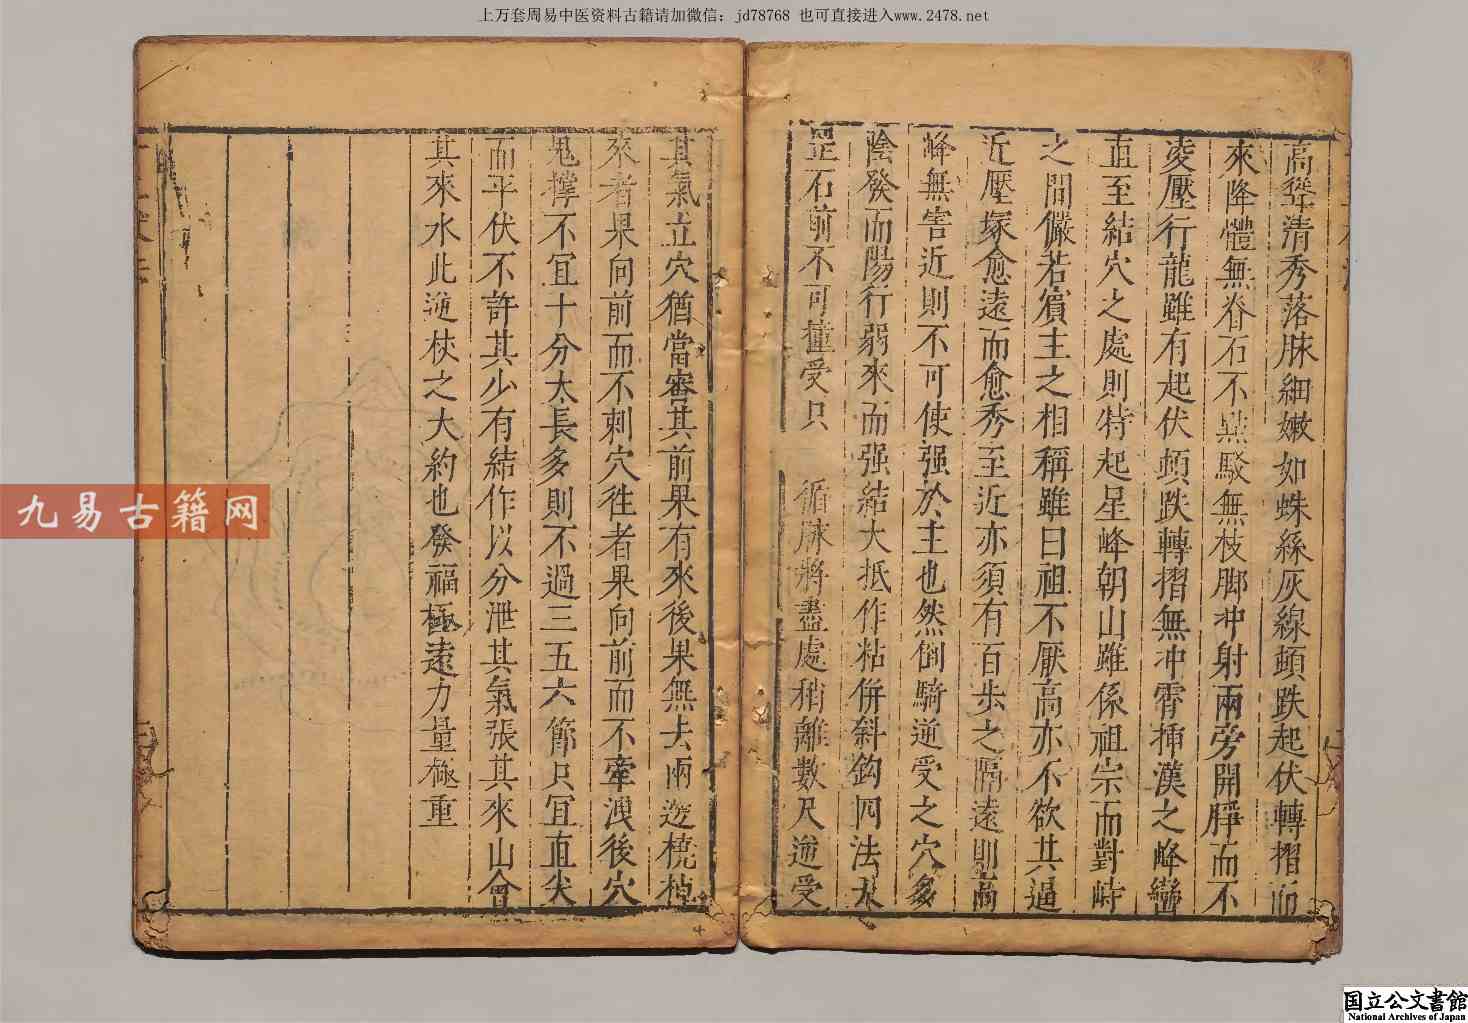 上万套周易中医资料古籍请加微信：jd78768 也可直接进入www.2478.net
高聳清秀落脉細嫩如蛛絲灰線頓跌起伏轉摺而
來降體無脊石不㸃駁無枝脚冲射兩旁開睜而不
凌壓行龍雖有起伏頓跌轉摺無冲霄揷漢之峰巒
直至結穴之處則特起星峰朝山雖係祖宗而對峙
之間儼若賔主之相稱雖曰祖不厭高亦不欲其逼
近壓塚愈遠而愈秀至近亦須有百步之隔遠則高
峰無害近則不可使强於主也然倒騎逆受之穴多
陰發而陽行弱來而强結大抵作粘倂斜鈎四法大
罡石前不可撞受只 循脉將盡處稍離數尺逆受
其氣立穴猶當審其前果有來後果無去兩邊橈棹
來者果向前而不刺穴徃者果向前而不牽洩後穴
鬼撑不宜十分太長多則不過三五六節只宜直尖
而平伏不許其少有結作以分泄其氣張其來山會
其來水此逆杖之大約也發福極遠力量極重
九易古籍网
国立公文書館
National Archives of Japan